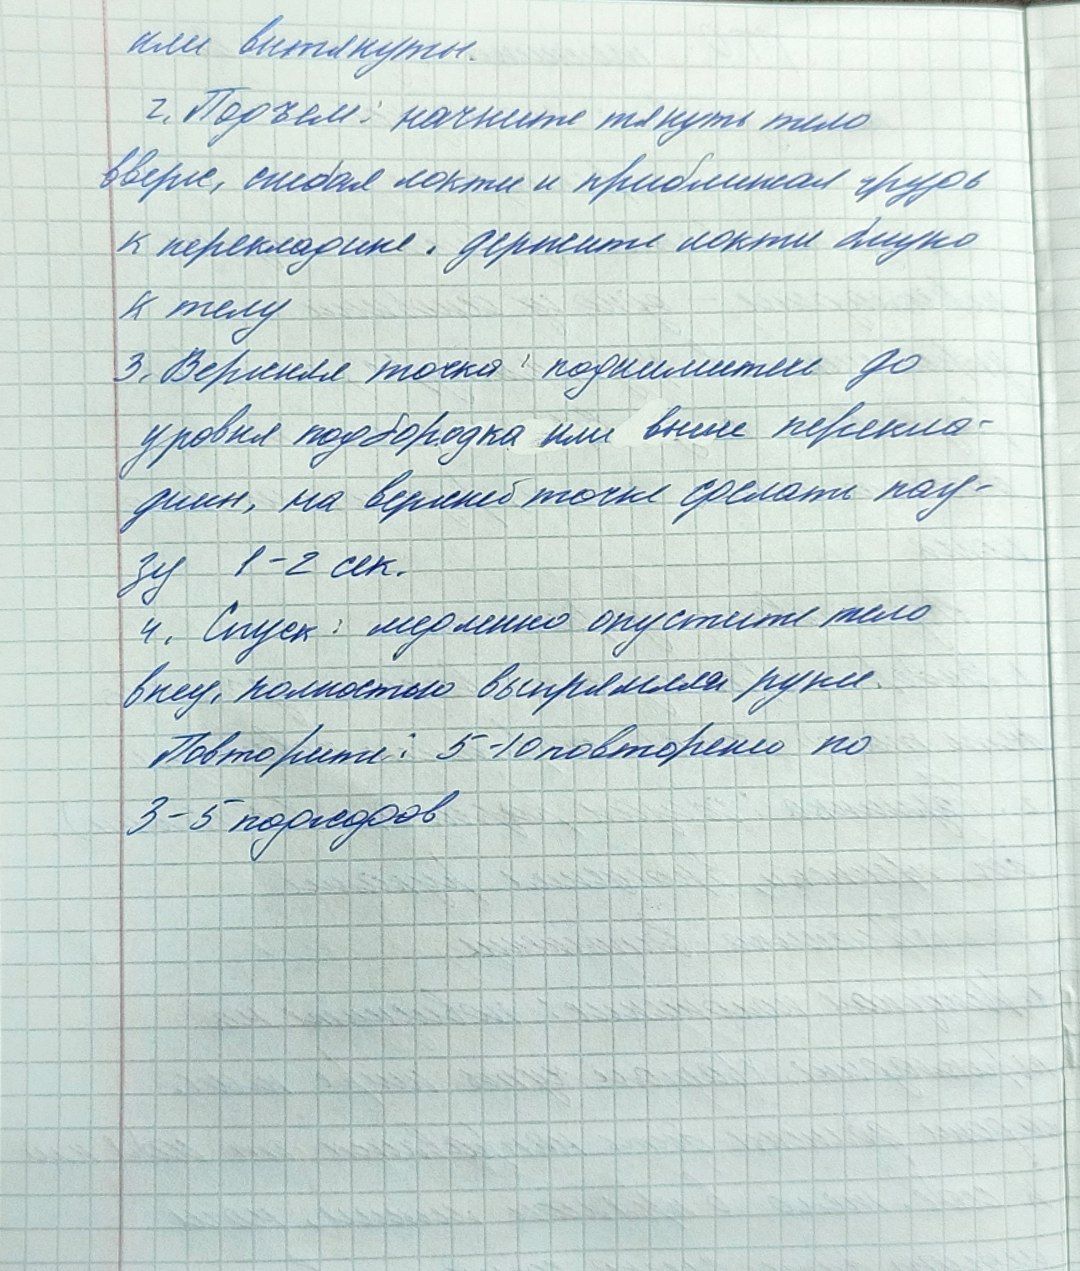 или вытянуты.
2. Подъем: начните тянуть тело
вверх, сгибая локти и приближая грудь
к перекладине. держите локти близко
к телу
3. Верхняя точка: поднимитесь до
уровня подбородка или выше перекла-
дин, на верхней точке сделать пау-
зу 1-2 сек.
4. Спуск: медленно опустите тело
вниз, полностью выпрямляя руки.
Повторите: 5-10 повторено по
3-5 подходов